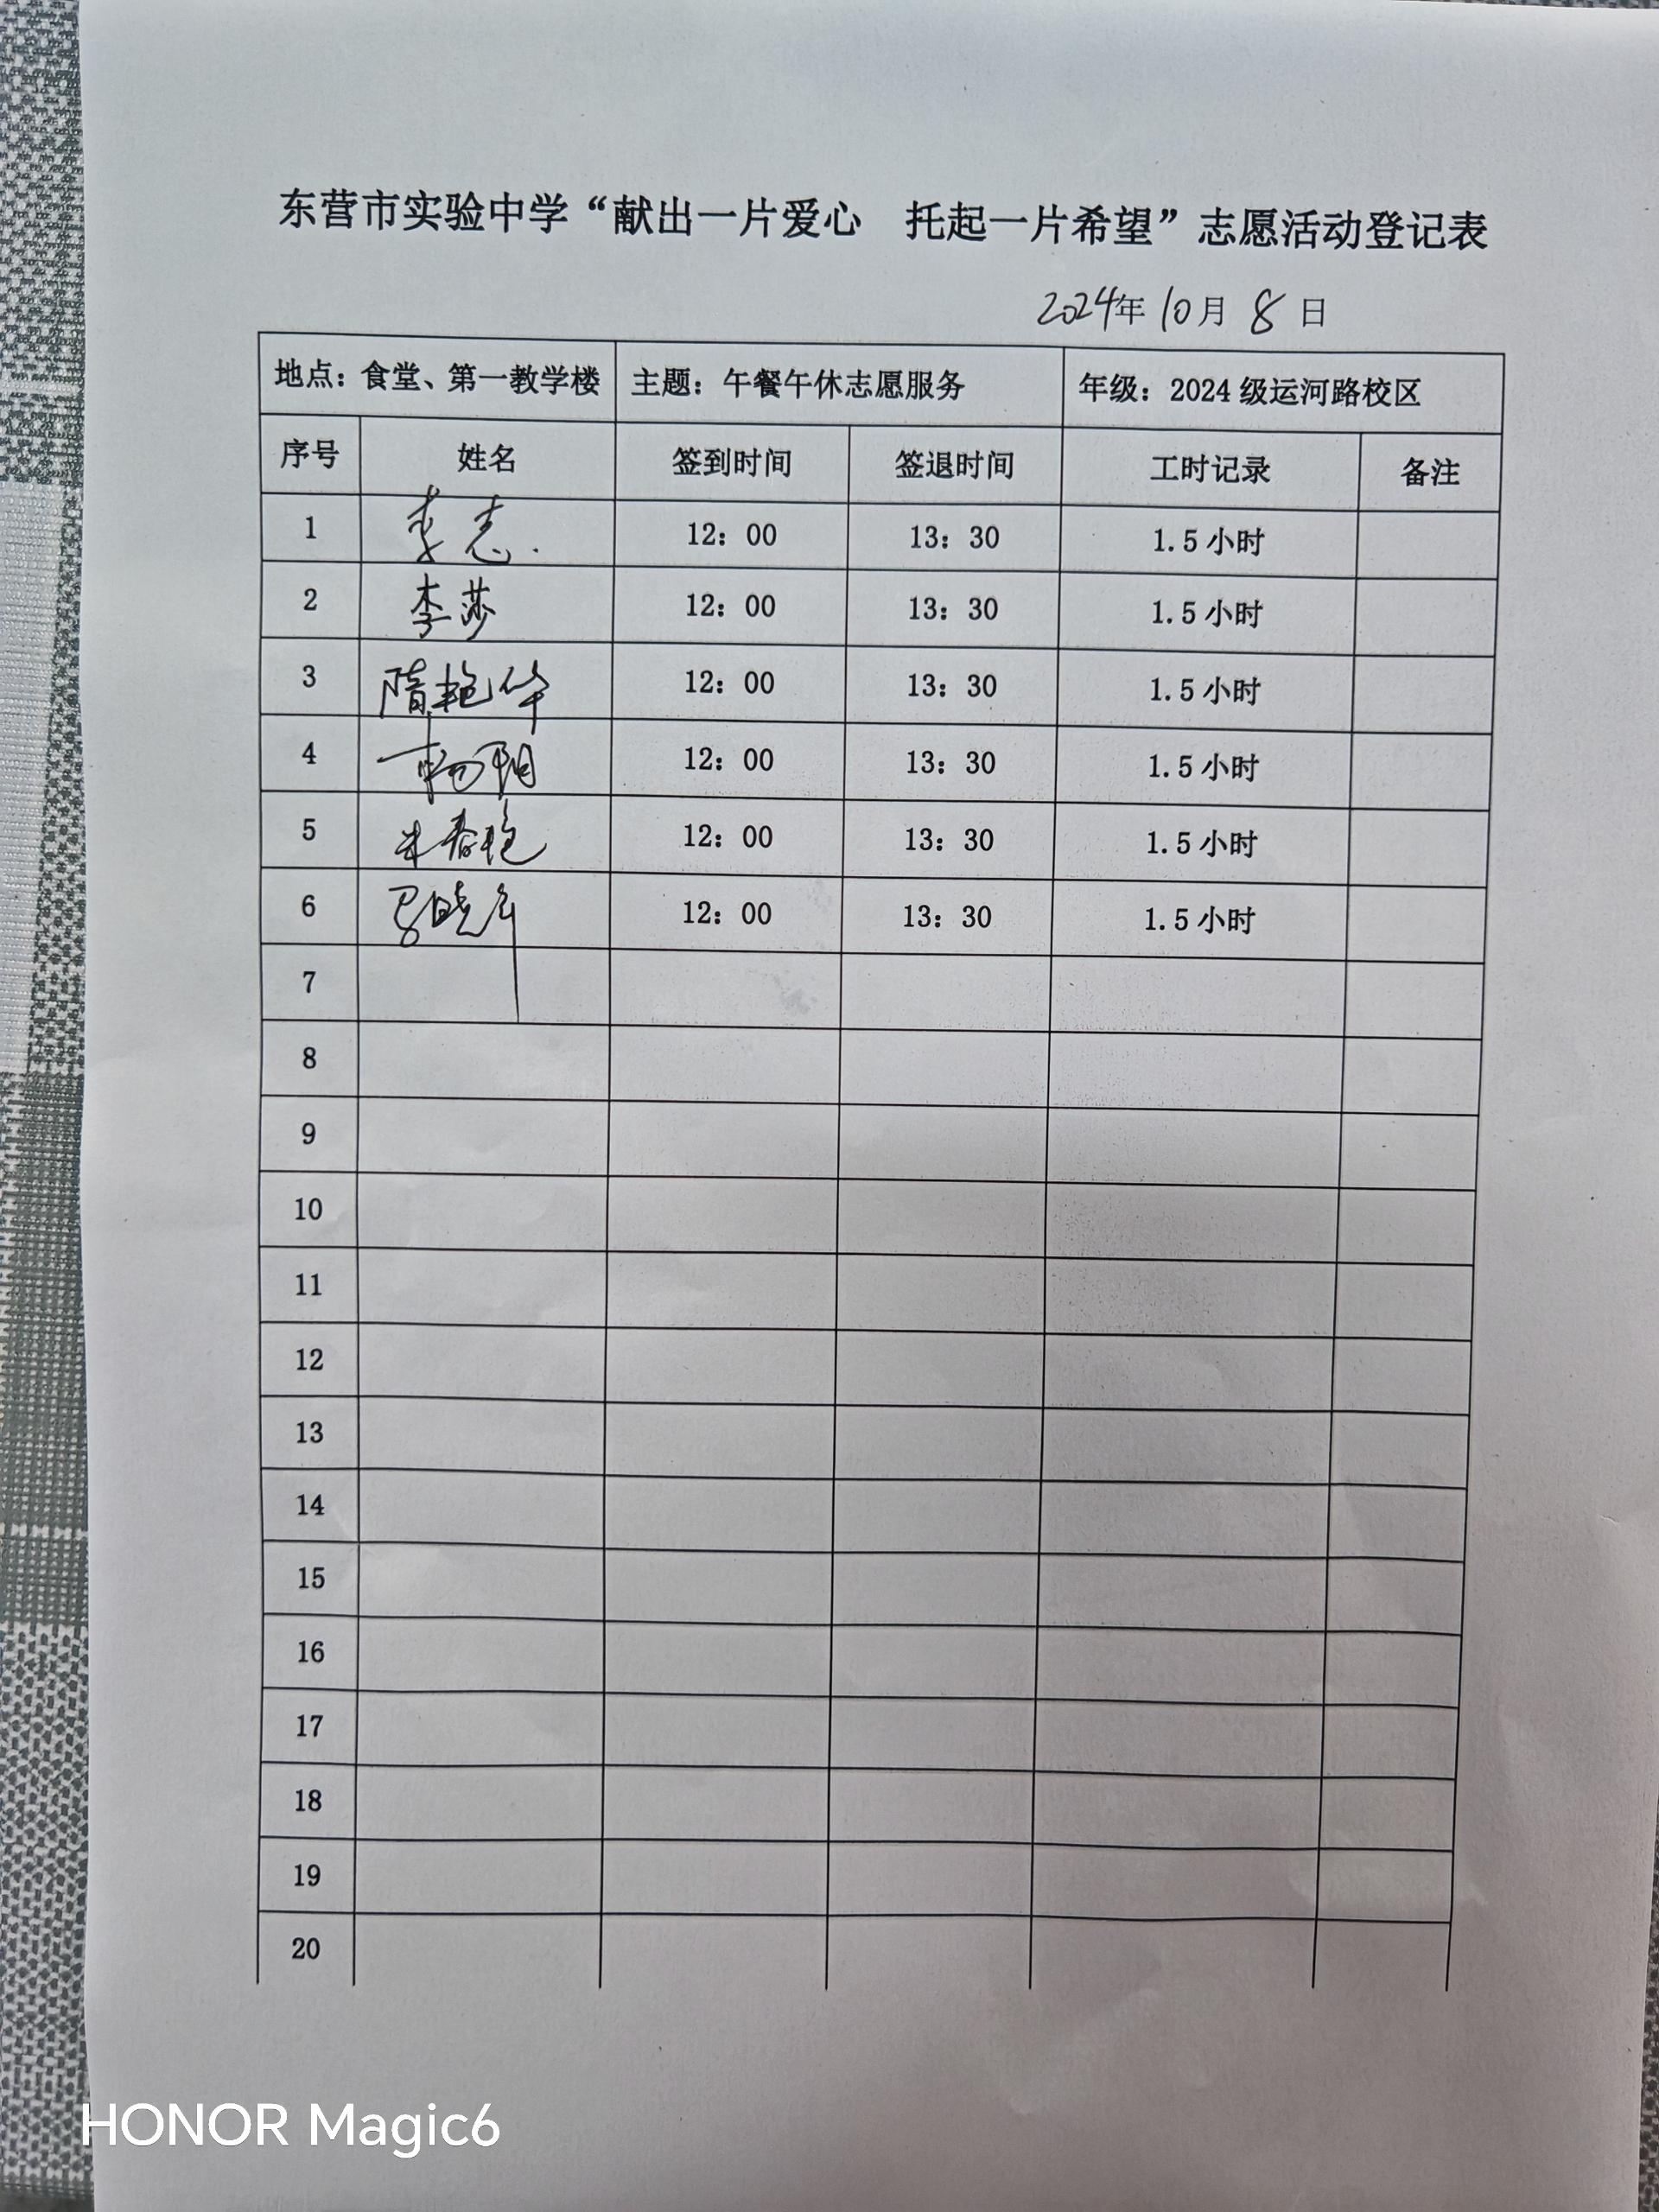 东营市实验中学“献出一片爱心 托起一片希望”志愿活动登记表
2024年 10月 8 日
地点：食堂、第一教学楼 主题：午餐午休志愿服务 年级：2024级运河路校区
序号 姓名 签到时间 签退时间 工时记录 备注
1 李志 12：00 13：30 1.5小时
2 李莎 12：00 13：30 1.5小时
3 隋艳华 12：00 13：30 1.5小时
4 杨阳 12：00 13：30 1.5小时
5 朱春艳 12：00 13：30 1.5小时
6 12：00 13：30 1.5小时
7
8
9
10
11
12
13
14
15
16
17
18
19
20
HONOR Magic6